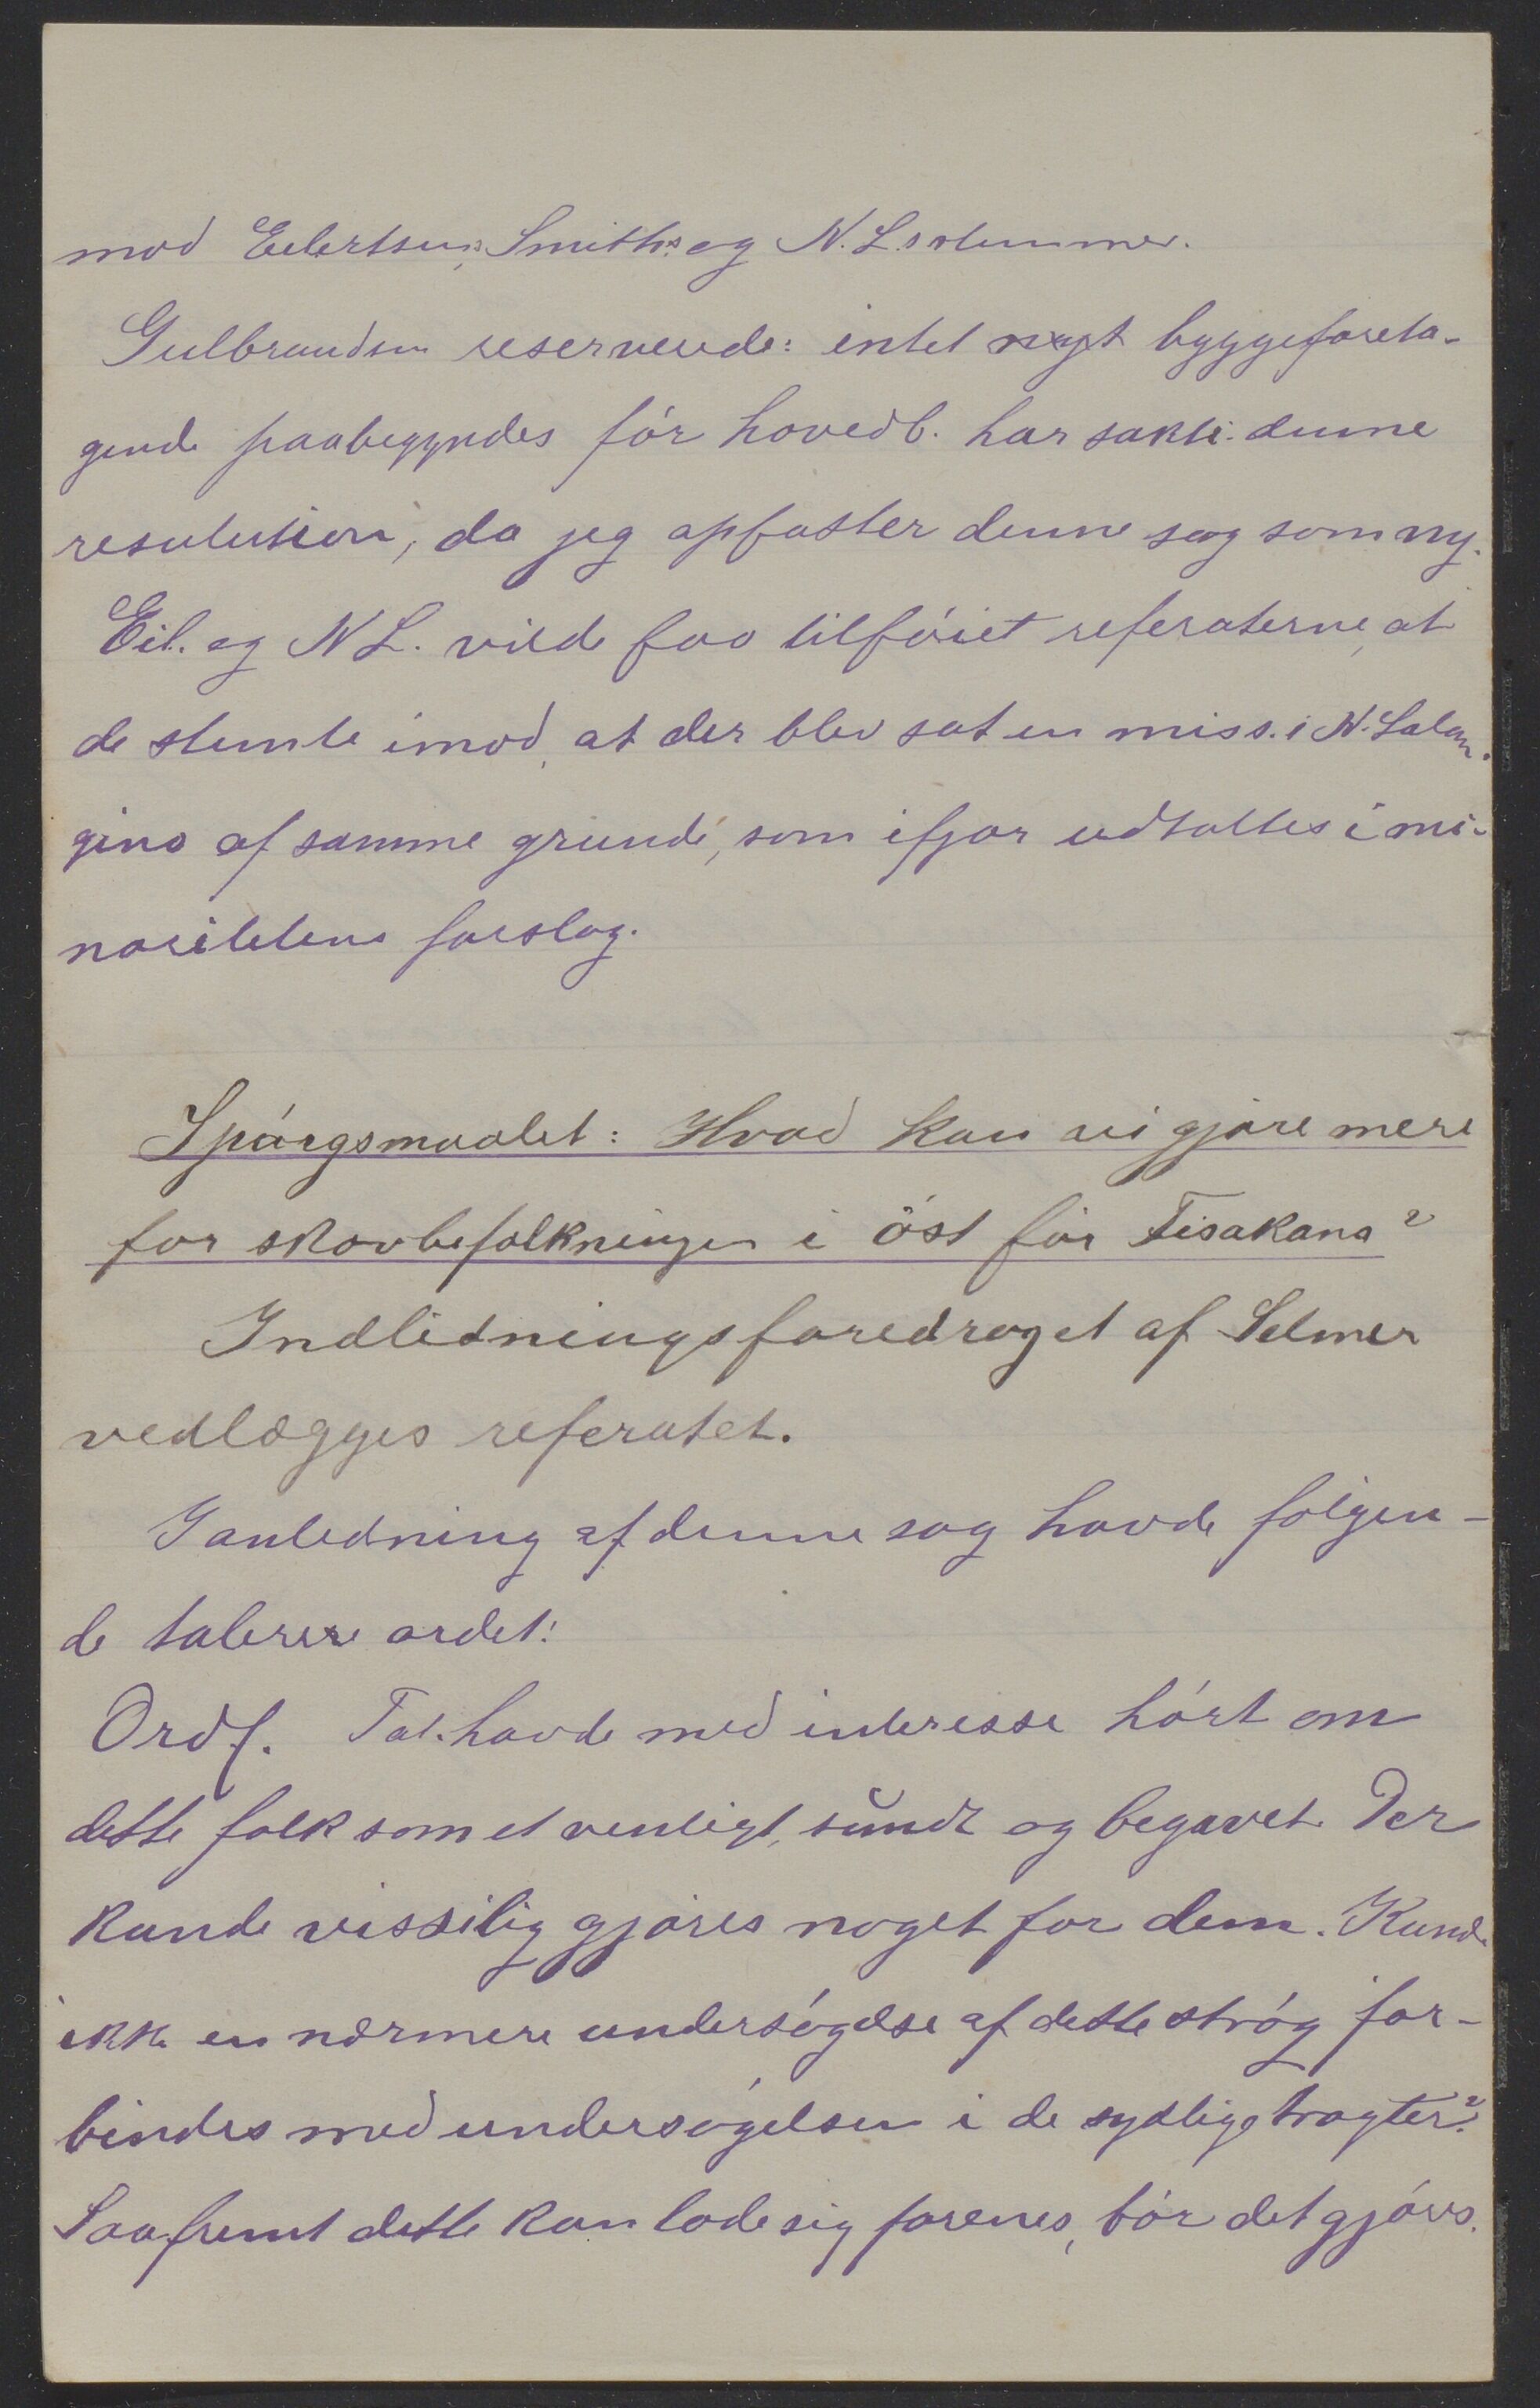 mod Eilertsens, Smiths og N. L.s stemmer.
Gulbrandsen reserverede: intet nyt byggeforeta-
gende paabegyndes før hovedb. har sakti. denne
resolution, da jeg opfatter denne sag som ny.
Eil. og N L. vilde faa tilføiet referaterne, at
de stemte imod, at der blev sat en miss. i N. Salan-
gina af samme grunde, som ifjor udtaltes i mi-
noritetens forslag.
Spørgsmaalet: Hvad kan vi gjøre mere
for skovbefolkningen i öst för Tisakana?
Indledningsforedraget af Selmer
vedlægges referatet.
I anledning af denne sag havde følgen-
de talerere ordet:
Ordf. Tal. havde med interesse hørt om
dette folk som et venligt, sŭndt og begavet. Der
kunde visselig gjøres noget for dem. Kunde
ikke en nærmere undersøgelse af dette strøg for-
bindes med undersøgelsen i de sydlige tragter?
Saafremt dette kan lade sig forenes, bør det gjøres.